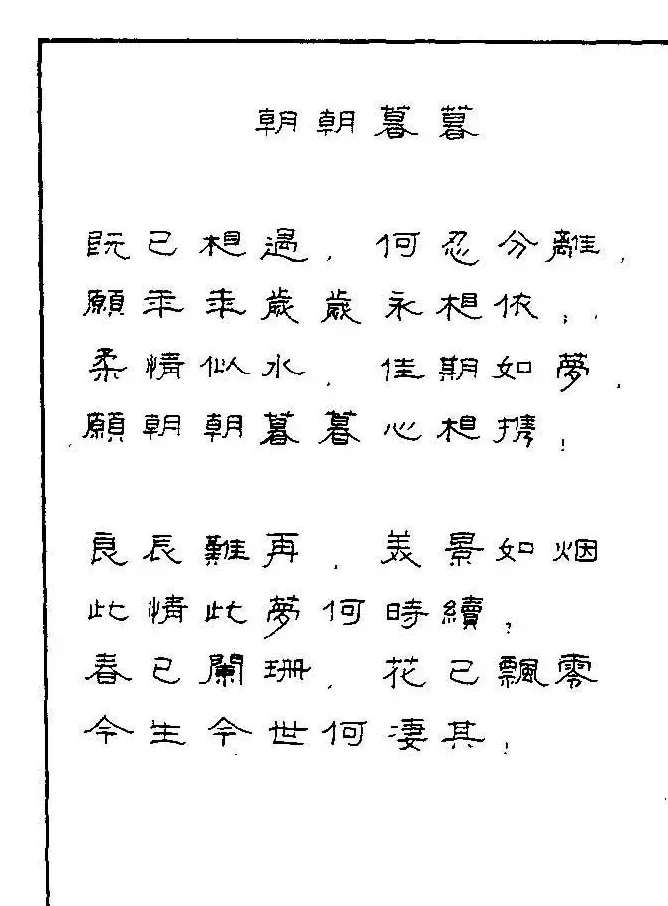 朝朝暮暮
既已相遇，何忍分離，
願年年歲歲永相依；
柔情似水，佳期如夢，
願朝朝暮暮心相携；
良辰難再，美景如烟
此情此夢何時續；
春已闌珊，花已飄零
今生今世何淒其；